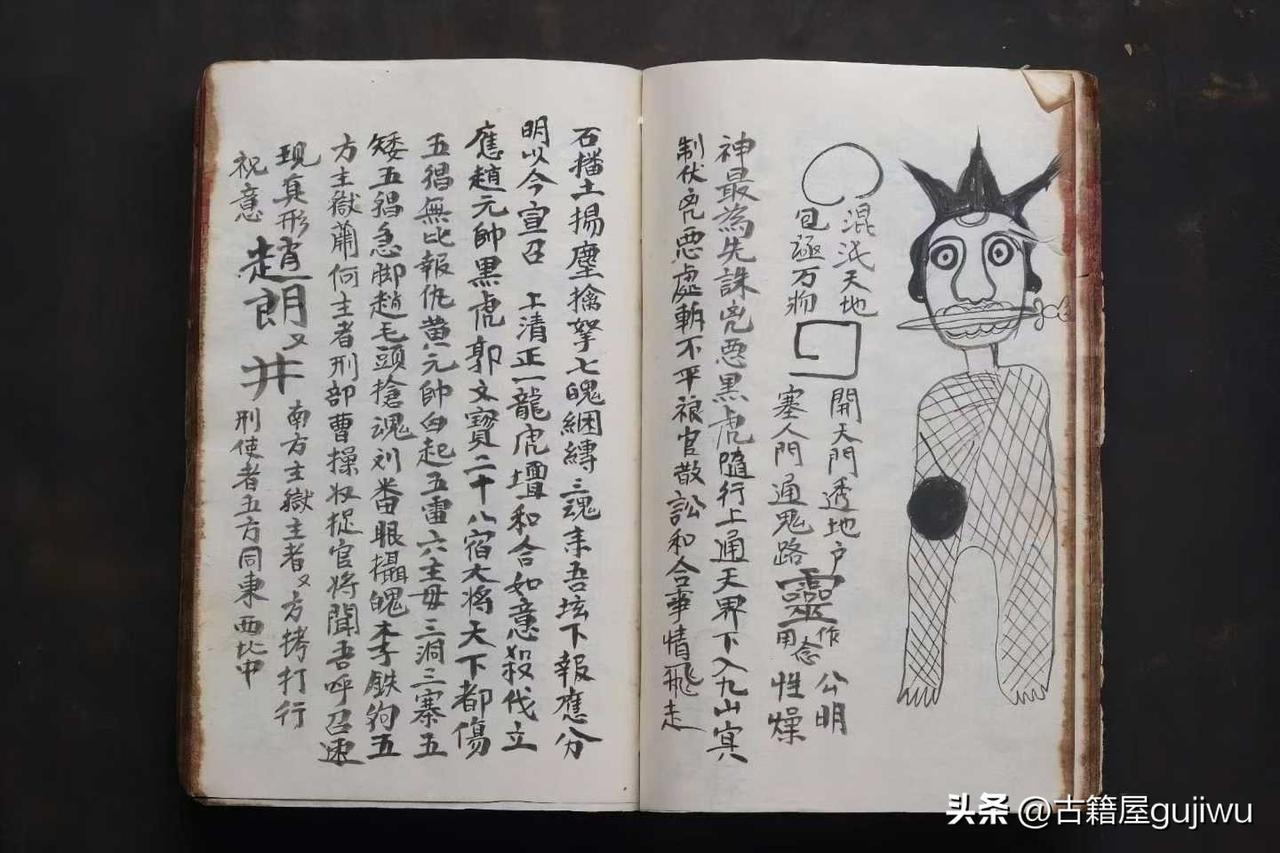 混沌天地
包極万物
開天門透地户
塞人門通鬼路
靈
作念用
公明
性燥
神最為先誅兇惡黑虎隨行上通天界下入九山冥
制伏兇惡處斬不平禄官散訟和合事情飛走
石播土揚塵擒拏七魄綑縛三魂来吾坛下報應分
明以今宣召 上清正一龍虎壇和合如意殺伐立
應趙元帥黑虎郭文寶二十八宿大將天下都傷
五猖無比報仇黄元帥白起五雷六主毋三洞三寨五
矮五猖急脚趙毛頭搶魂刘番眼攝魄李鉄狗五
方主獄蕭何主者刑部曹操收捉官將聞吾呼召速
現真形
祝意
趙朗
井
南方主獄主者又方拷打行
刑使者五方同東西北中
头条 @古籍屋gujiwu